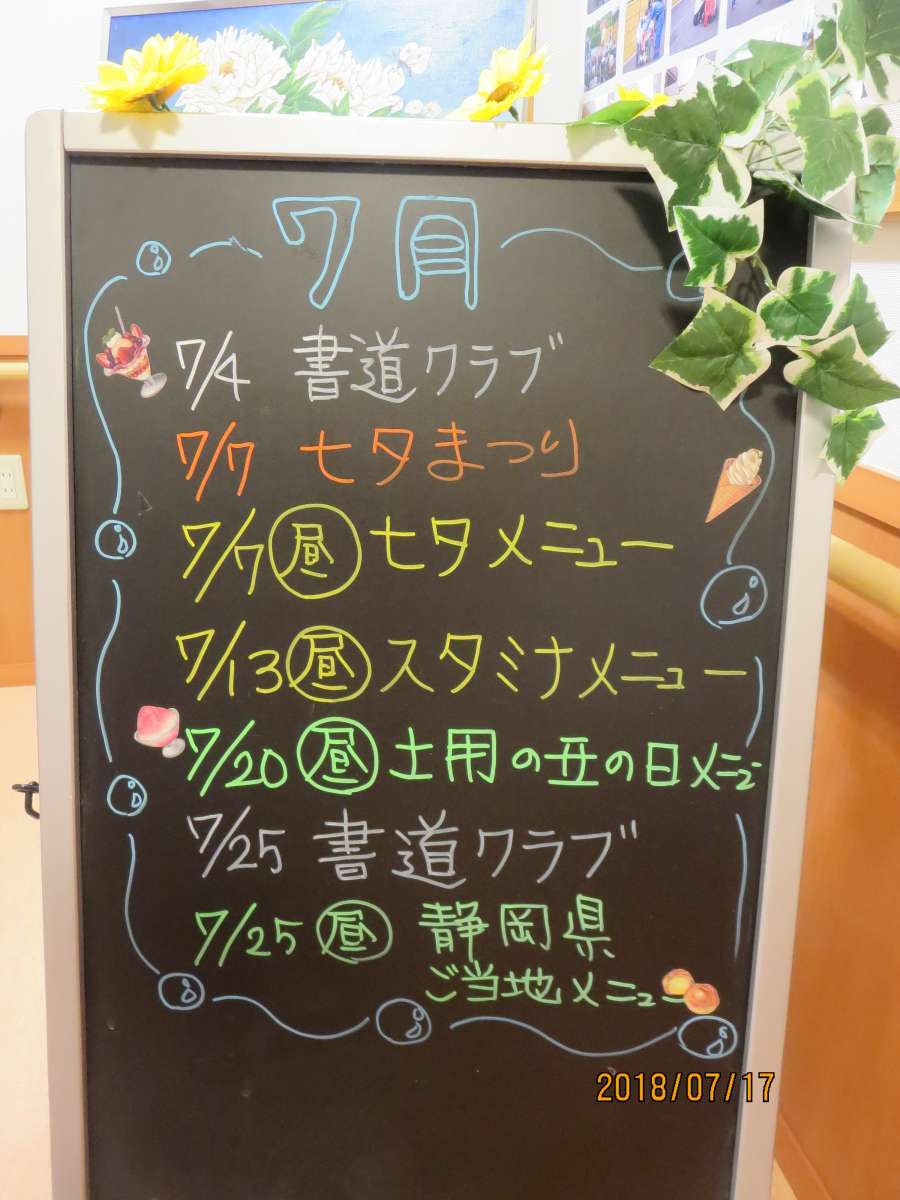 7月
7/4 書道クラブ
7/7 七夕まつり
7/7 昼 七夕メニュー
7/13 昼 スタミナメニュー
7/20 昼 土用の丑の日メニュー
7/25 書道クラブ
7/25 昼 静岡県
ご当地メニュー
2018/07/17